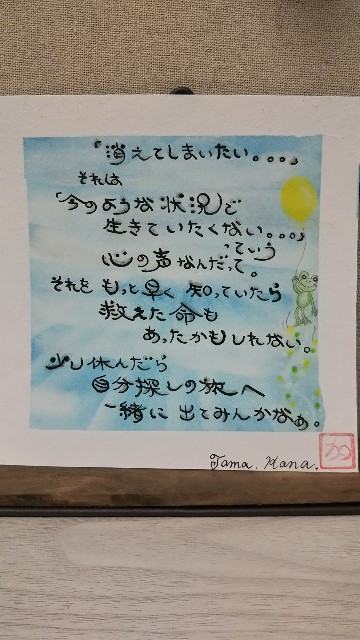 「消えてしまいたい。。。」
それは
「今のような状況で
生きていたくない。。。」
っていう
心の声なんだって。
それを もっと早く 知っていたら
救えた命も
あったかもしれない。
少し休んだら
自分探しの旅へ
一緒に 出てみんかなぁ。
Tama. Kana.
加